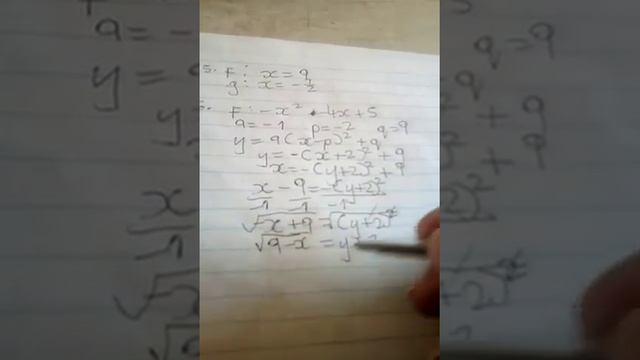 5. F: x = 9
g: x = -½
F: -x² - 4x + 5
a = -1 p = -2 q = 9
y = a(x-p)² + q
y = -(x+2)² + 9
x = -(y+2)² + 9
x - 9 = -(y+2)²
-1 -1 -1
√-x+9 = √(y+2)²
√9-x = y